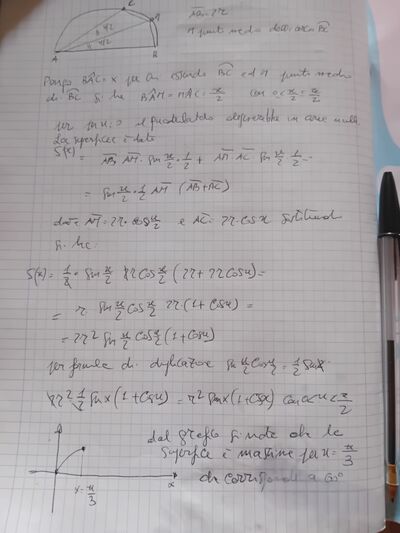 C
M
x/2
x/2
A
B
AB = 2r
M punto medio dell'arco BC
Pongo BÂC = x per cui essendo BC ed M punto medio
di BC si ha BÂM = MÂC = x/2 con 0 <
per x = 0 il quadrilatero degenerebbe in
La superficie è data
S(x) = AB AM · sin x/2 · 1/2 + AM AC sin x/2 · 1/2 =
= sin x/2 · 1/2 AM (AB + AC)
dove AM = 2r · cos x/2 e AC = 2r cos x
si ha:
S(x) = 1/2 · sin x/2 2r cos x/2 (2r + 2r cos x) =
= r sin x/2 cos x/2 2r (1 + cos x) =
= 2r² sin x/2 cos x/2 (1 + cos x)
per formule di duplicazione sin x/2 cos x/2 = 1/2 sin x
2r² 1/2 sin x (1 + cos x) = r² sin x (1 + cos x) con 0 < x < π/2
dal grafico si nota che la
superficie è massima per x = π/3
che corrisponde a 60°
x
x = π/3